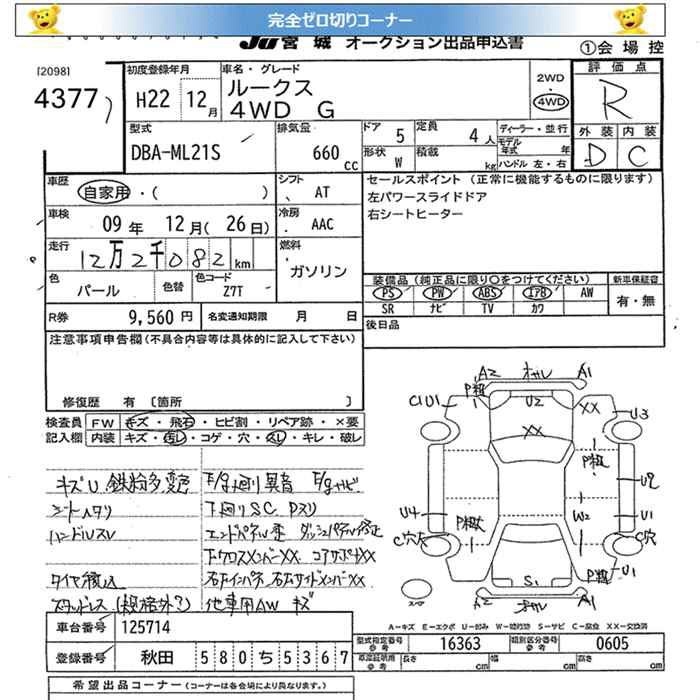 完全ゼロ切りコーナー
JU宮城 オークション出品申込書
①会場控
[2098]
4377
初度登録年月 H22 12月
車名・グレード ルークス 4WD G
2WD ・ 4WD
評価点 R
外装 内装
D C
型式 DBA-ML21S
排気量 660 cc
ドア 5 定員 4人
形状 W 積載 kg
ディーラー・並行
モデル年式 年
ハンドル 左・右
車歴 自家用・( )
シフト AT
車検 09年 12月(26日)
冷房 AAC
走行 12万2千082km
燃料 ガソリン
色 パール 色替 色コード Z7T
R券 9,560円 名変通知期限 月 日
セールスポイント (正常に機能するものに限ります)
左パワースライドドア
右シートヒーター
装備品 (純正品に限り○をつけてください) 新車保証書
PS PW ABS エアB AW 有・無
SR ナビ TV カワ
後日品
注意事項申告欄(不具合内容等は具体的に記入して下さい)
修復歴 有 〔箇所 〕
検査員 FW キズ・飛石・ヒビ割・リペア跡・×要
記入欄 内装 キズ・汚レ・コゲ・穴・スレ・キレ・破レ
キズU 鉄粉多 変色
シートヘタリ
ハンドルスレ
タイヤ積込
スタッドレス(規格外?)
F/g廻り異音 F/gナビ
下廻りSC Pスリ
エンドパネル歪 ダッシュパネル修正
下クロスメンバーXX コアサポートXX
右Fインパネ 右左サイドメンバーXX
他車用AW キズ
A2 オサレ A1
P粗
C1U1
U2
XX
U3
XX
P粗
U2
U4
P粗大
W2
U1
C穴大
C穴
P粗
U1
S1
A2 オサレ A1
スペア
A-キズ E-エクボ U-凹み W-補修跡 S-サビ C-腐食 XX-交換済
車台番号 125714
登録番号 秋田 580 ち 5367
型式指定番号 参考 16363 類別区分番号 参考 0605
車庫証明用 参考 長さ cm 幅 cm 高さ cm
希望出品コーナー (コーナーは各会場により異なります。)